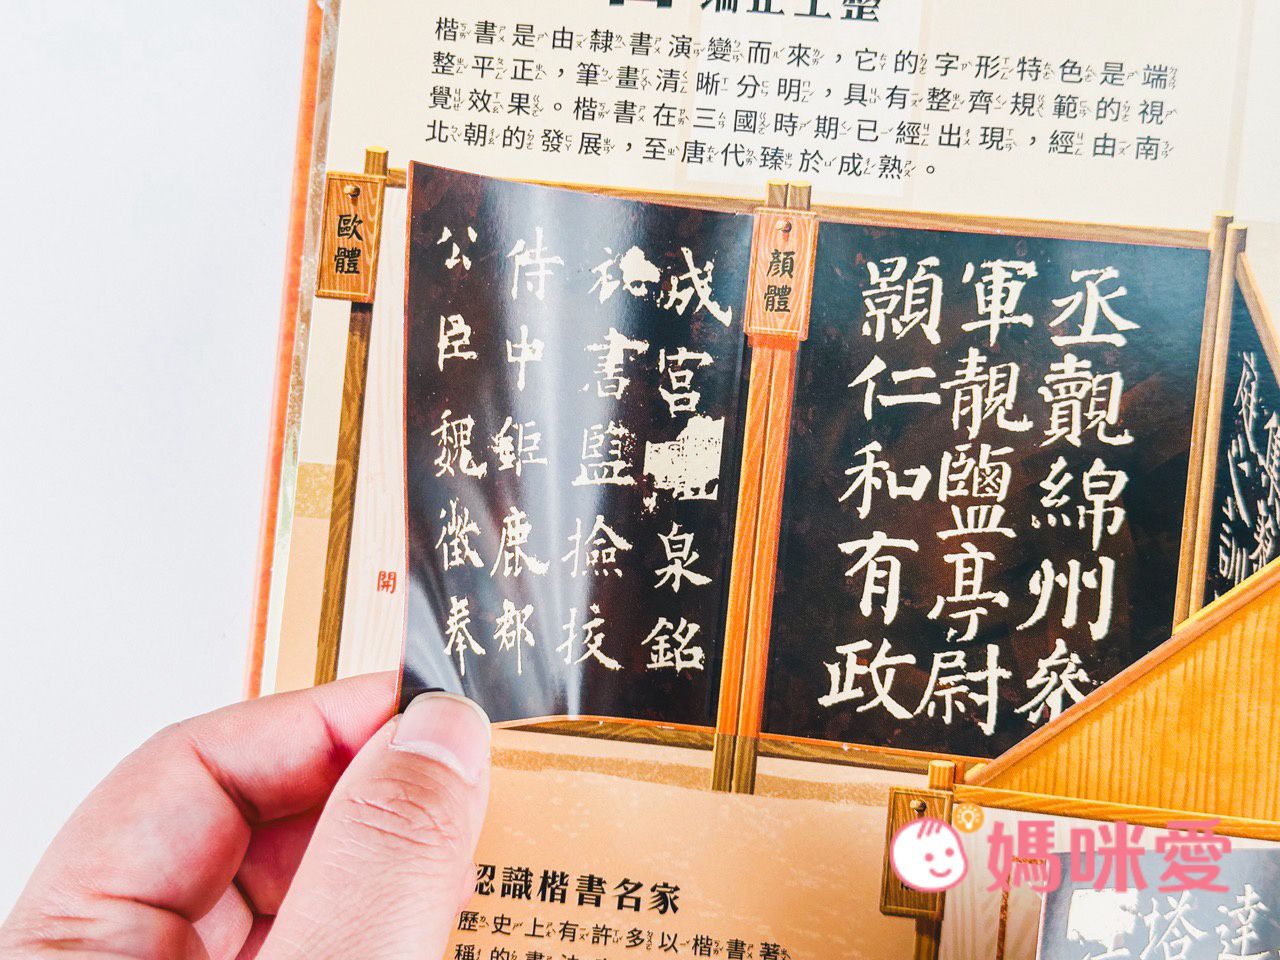 端正工整
楷書是由隸書演變而來，它的字形特色是端
整平正，筆畫清晰分明，具有整齊規範的視
覺效果。楷書在三國時期已經出現，經由南
北朝的發展，至唐代臻於成熟。
歐體
成宮
泉銘
祕書監撿挍
侍中鉅鹿郡
公臣魏徵奉
開
顏體
丞覿綿州叅
軍靚鹽亭尉
顥仁和有政
媽咪愛
認識楷書名家
歷史上有許多以楷書著
稱的書法
達
塔